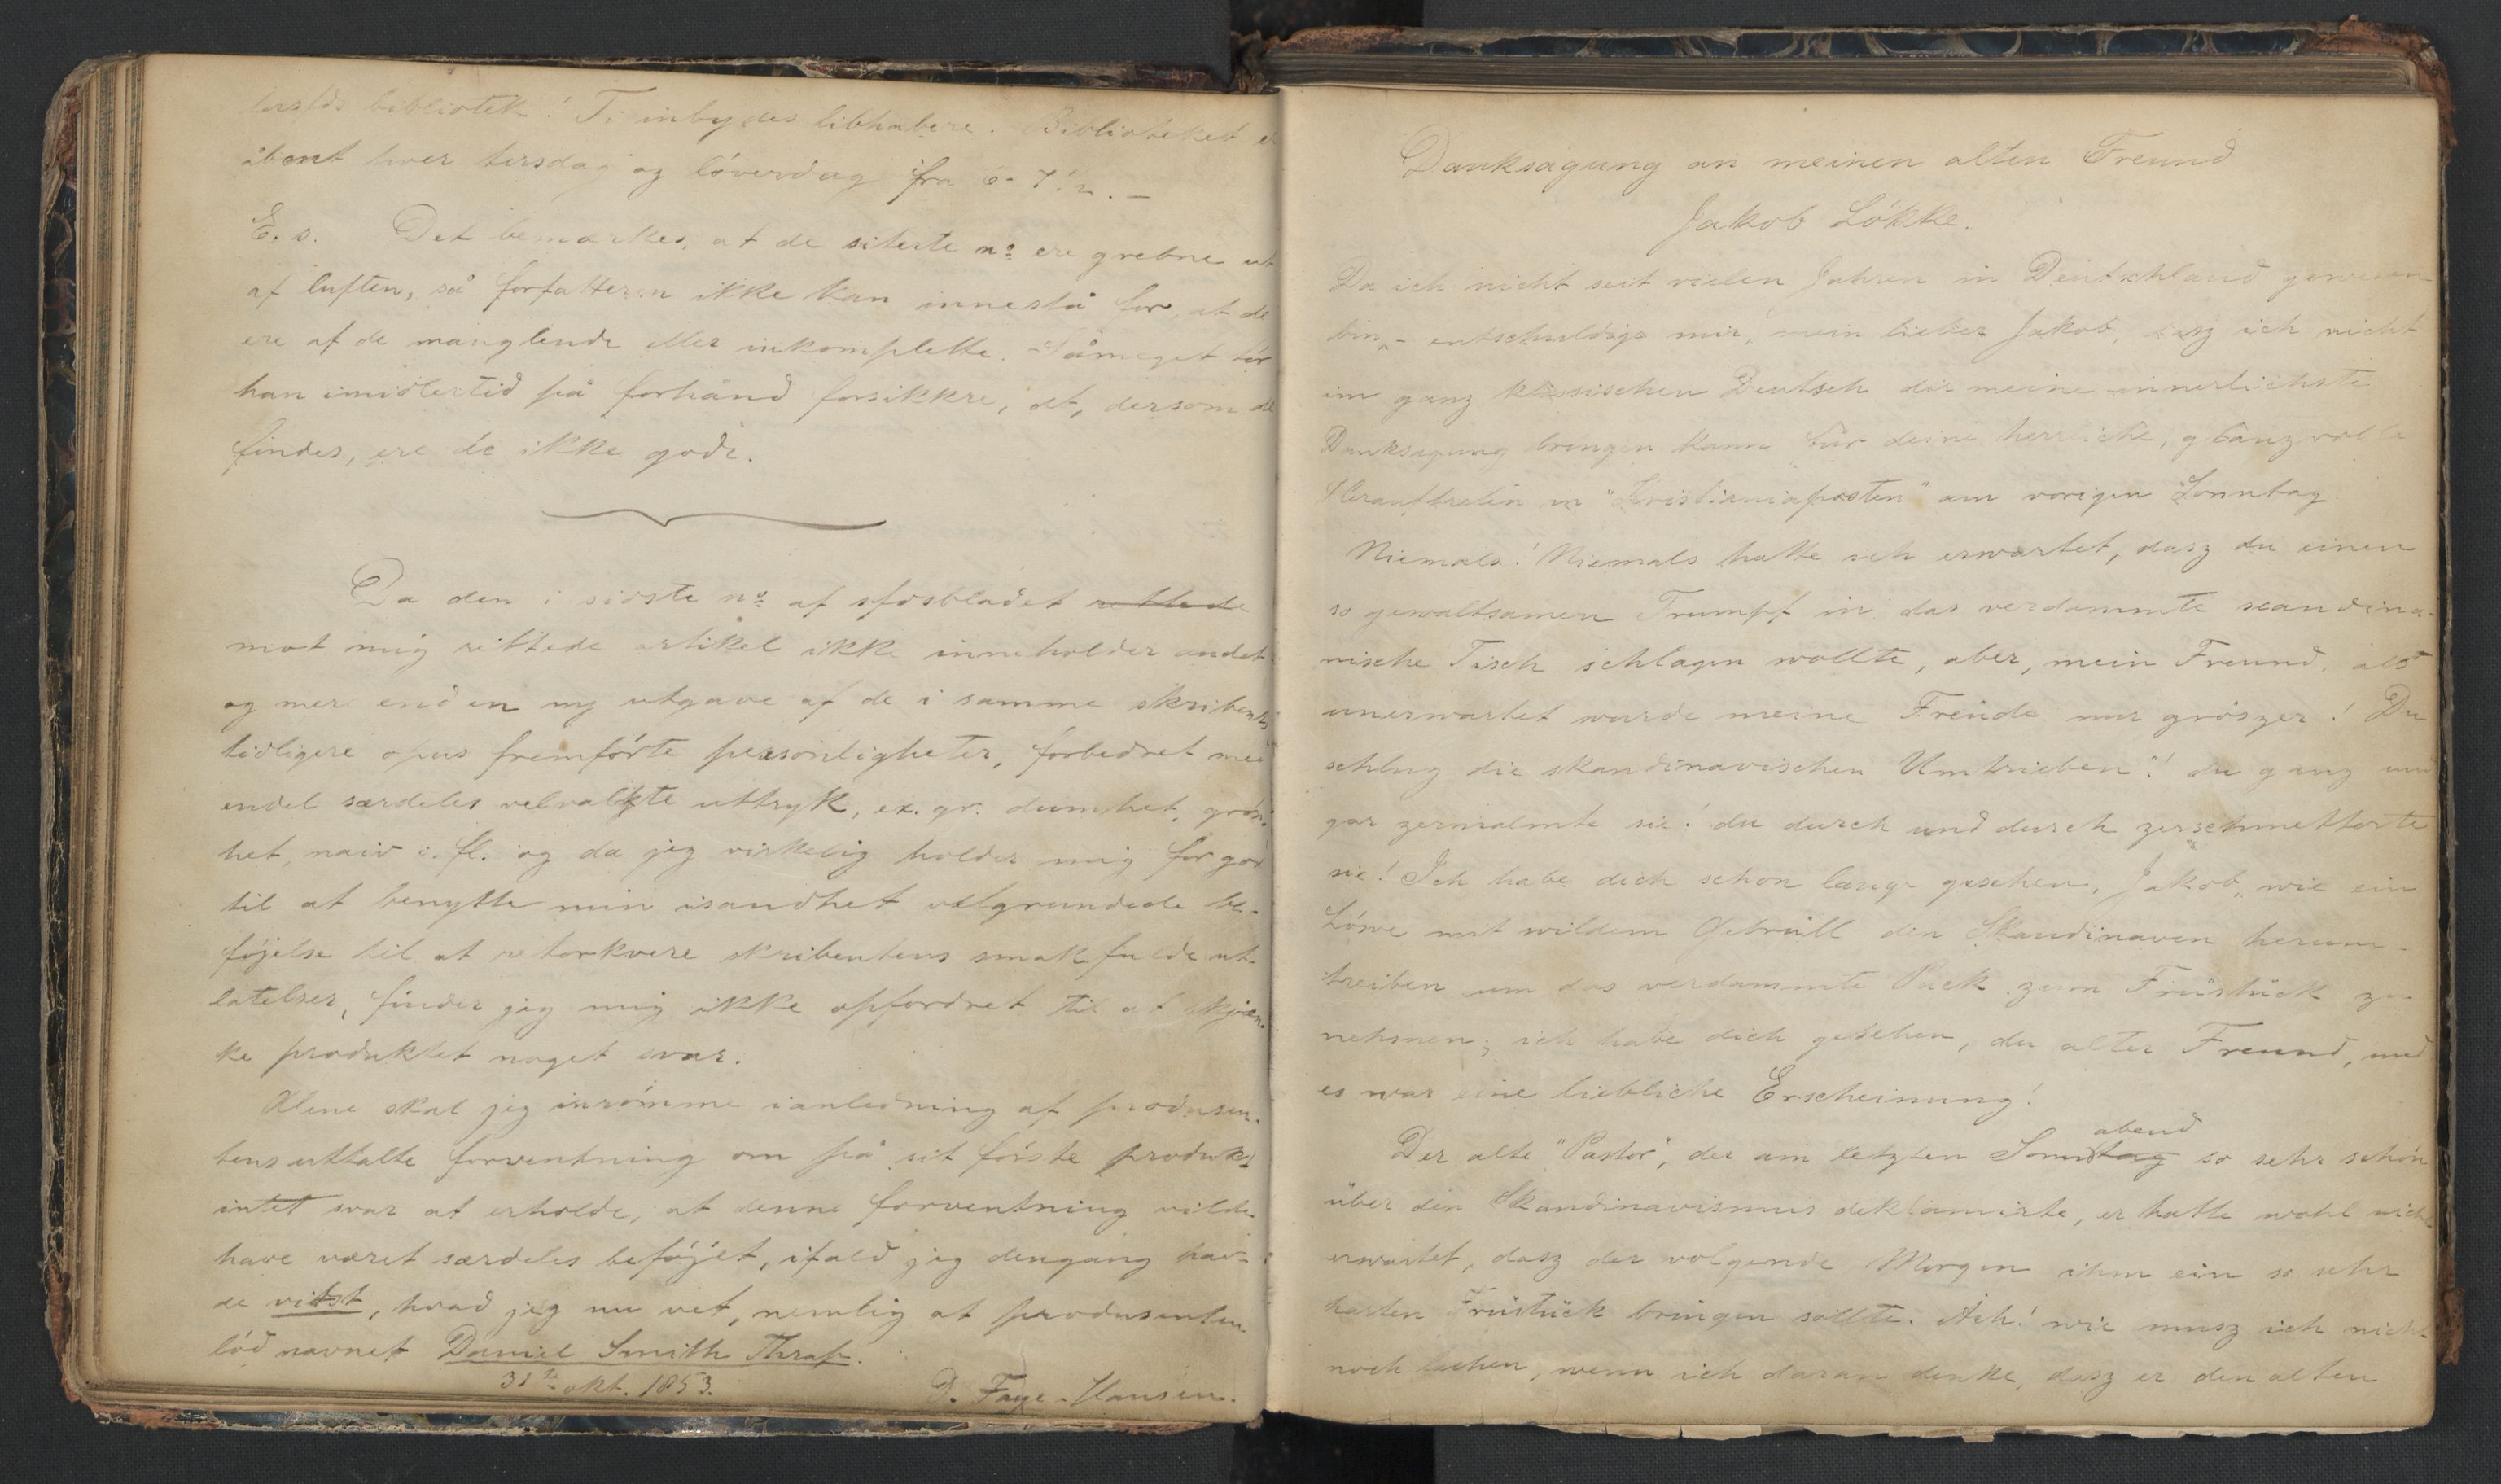 bibliotek! Ti inbydes libhabere. Biblioteket er
åbent hver tirsdag og lóverdag fra 6-7 1/2. —
E. s. Det bemærkes, at de siterte no ere grebne ut
af luften, så forfatteren ikke kan innestå for, at de
ere af de manglende eller inkomplette. Såmeget tór
han imidlertid på forhånd forsikkre, at, dersom de
findes, ere de ikke gode.
Da den i sidste no af sfdsbladet rettede
mot mig rettede artikel ikke inneholder andet
og mer end en ny utgave af de i samme skribents
tidligere opus fremfórte personligheter, forbedret med
endel særdeles velvalgte uttryk, ex. gr. dumhet, grón-
het, naiv o. fl. og da jeg virkelig holder mig for god
til at benytte min isandhet velgrundede be-
fójelse til at retorkvere skribentens smakfulde ut-
latelser, finder jeg mig ikke opfordret til at skjæn-
ke produktet noget svar.
Alene skal jeg inrómme ianledning af produsen-
tens uttalte forventning om på sit fórste produkt
intet svar at erholde, at denne forventning vilde
have været særdeles befójet, ifald jeg dengang hav-
de vidst, hvad jeg nu vet, nemlig at produsenten
lód navnet Daniel Smith Thrap.
31te okt. 1853. D. Faye-Hansen.
Danksagung an meinen alten Freund
Jakob Lókke.
Da ich nicht seit vielen Jahren in Deutschland gewesen
bin, - entschuldige mir, mein lieber Jakob, dasz ich nicht
im ganz klassischen Deutsch dir meine innerlichste
Danksagung bringen kann für deine herrliche, glanzvolle
in "Kristianiaposten" am vorigen Sonntag.
Niemals! Niemals hatte ich erwartet, dasz du einen
so gewaltsamen Trumpf in das verdammte scandina-
vische Tisch schlagen wollte, aber, mein Freund, als
unerwartet wurde meine Freude nur grószer! Du
schlug die skandinavischen Umtrieben! du ganz und
gar zermalmte sie! du durch und durch zerschmetterte
sie! Ich habe dich schon længe gesehen, Jakob, wie ein
Lówe mit wildem Gebrüll den Skandinaven herum-
treiben um das verdammte Pack zum Früstück zu
nehmen; ich habe dich gesehen, du alter Freund, und
es war eine liebliche Erscheinung!
abend
Der alte "Pastor", der am letzten Sonntag so sehr schón
über den Skandinavismus deklamirte, er hatte wohl nicht
erwartet, dasz der volgende Morgen ihm ein so sehr
harten Früstück bringen sollte. Ach! wie musz ich nicht
noch lachen, wenn ich daran denke, dasz er den alten